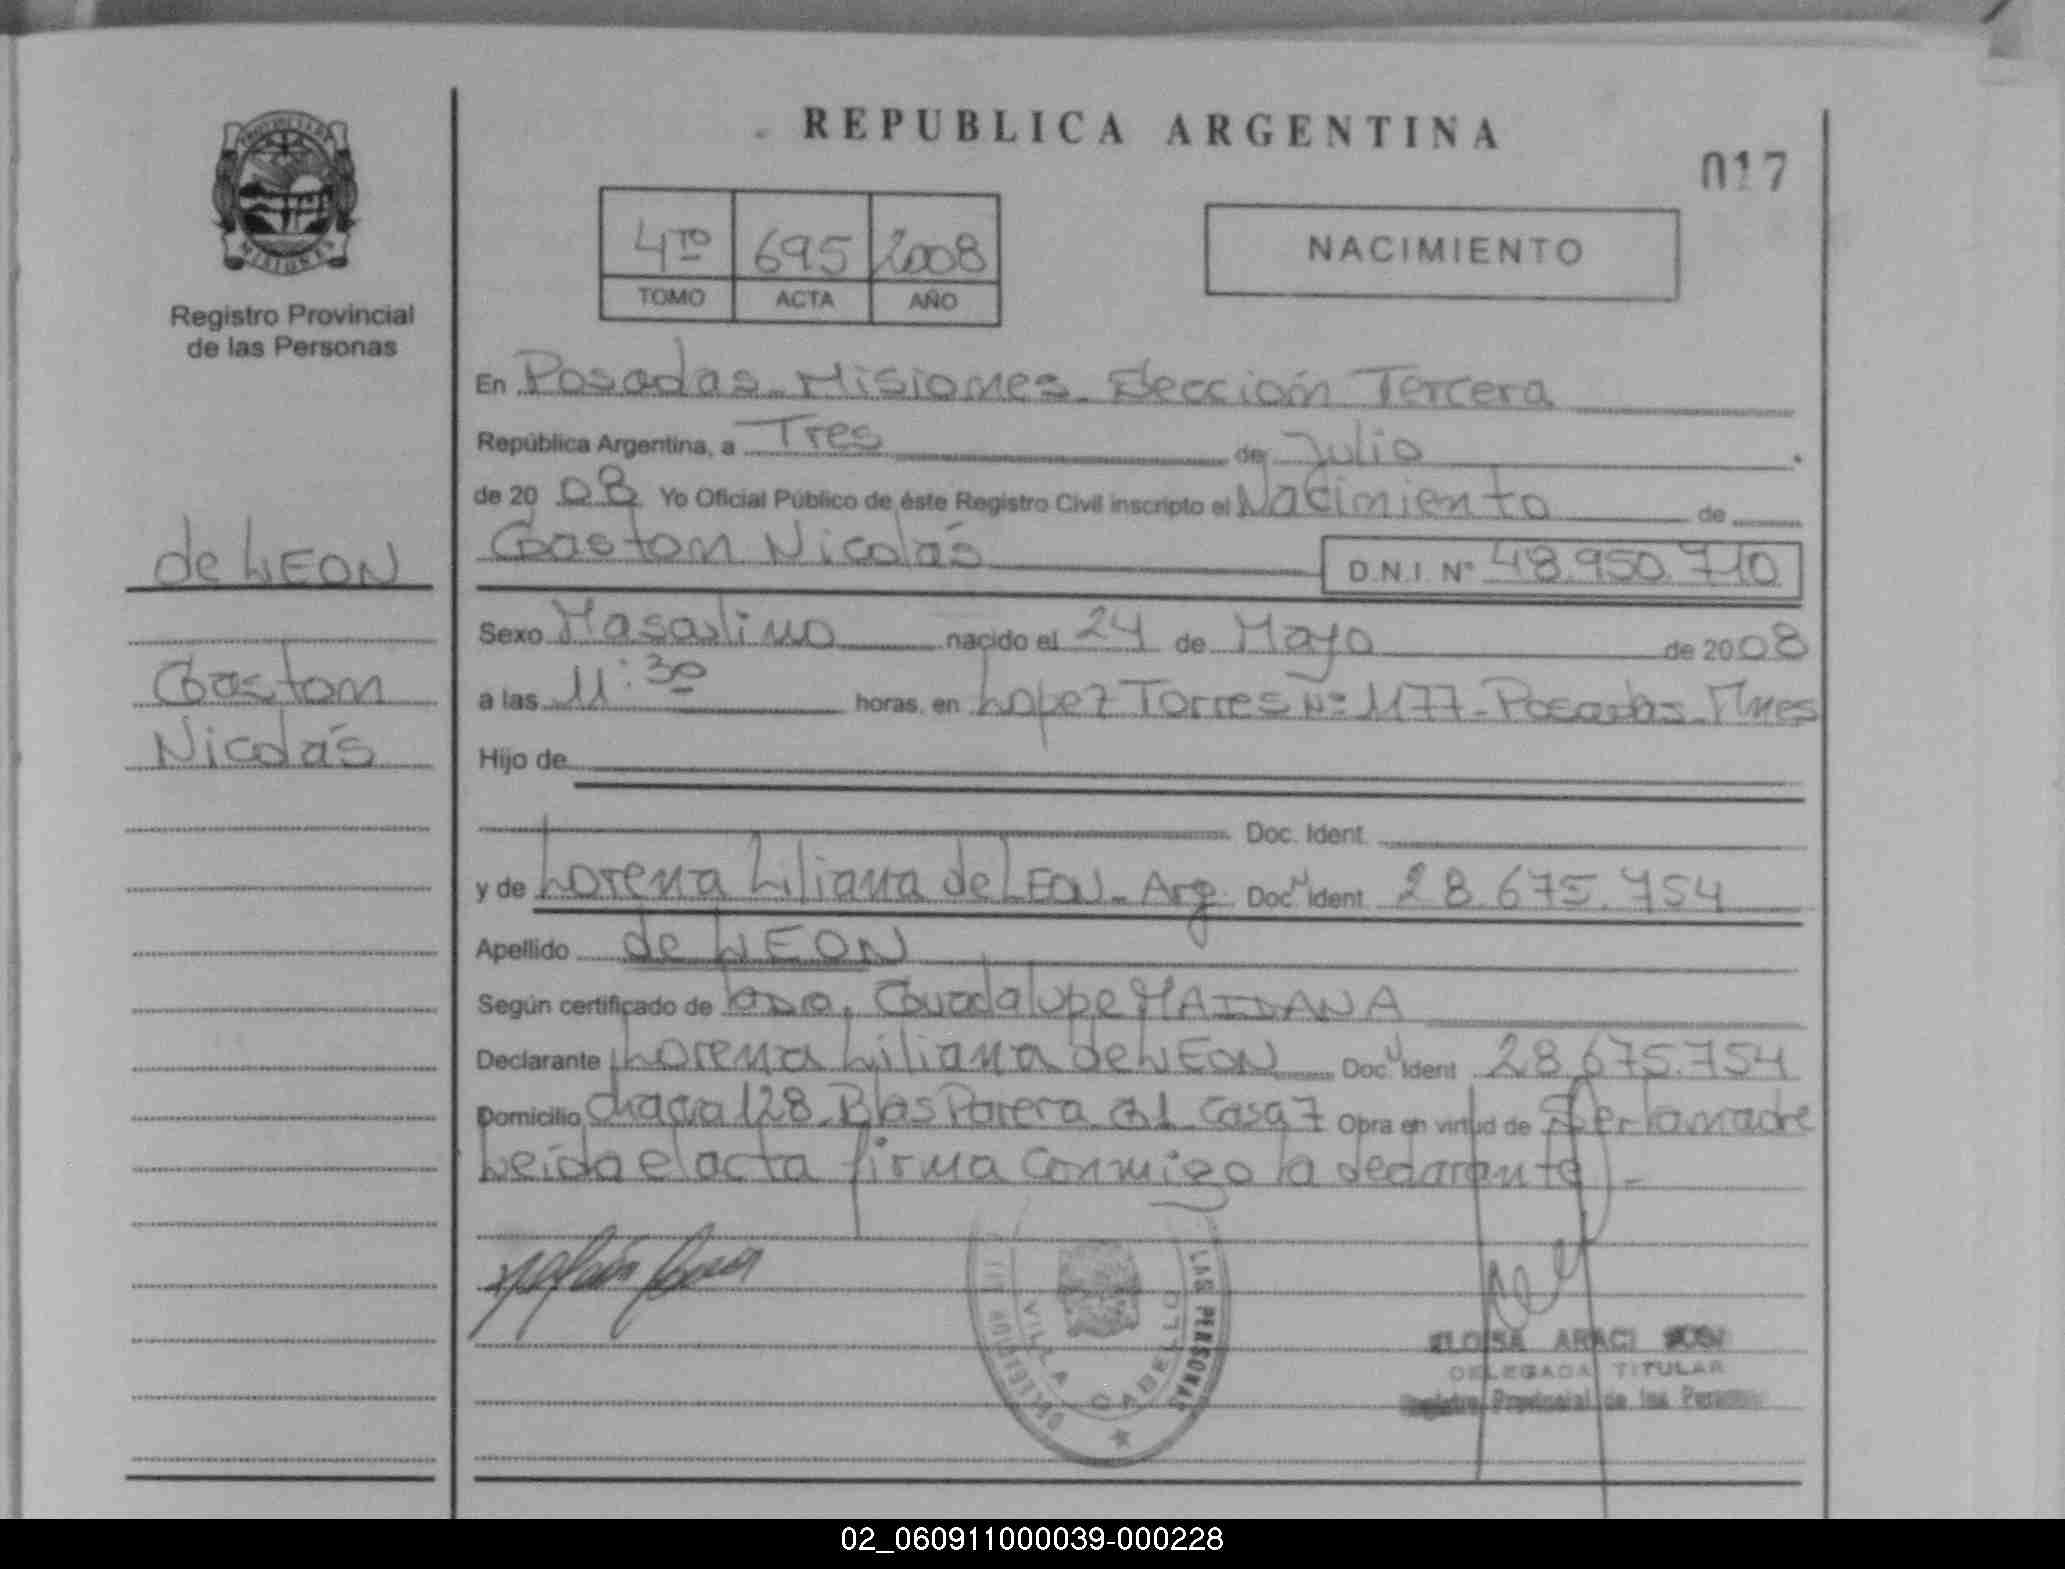 REPUBLICA ARGENTINA
017
PROVINCIA DE
MISIONES
Registro Provincial
de las Personas
4TO 695 2008
TOMO ACTA AÑO
NACIMIENTO
En Posadas - Misiones - Sección Tercera
República Argentina, a Tres de Julio
de 2008 Yo Oficial Público de éste Registro Civil inscripto el Nacimiento de
Gastom Nicolás D.N.I. Nº 48.950.710
de LEON
Gastom
Nicolás
Sexo Masculino nacido el 24 de Mayo de 2008
a las 11:30 horas, en Lopez Torres Nº 1177 - Posadas - Mnes
Hijo de
Doc. Ident.
y de Lorena Liliana de LEON - Arg. Doc. Ident 28.675.754
Apellido de LEON
Según certificado de Guadalupe MAIDANA
Declarante Lorena Liliana de LEON Doc. Ident 28.675.754
Domicilio chacra 128 - Blas Parera casa 7 Obra en virtud de Ser la madre
Leída el acta firma conmigo la declarante -
LAS PERSONAS
VILLA CABELLO
ELOISA ARACI
DELEGADA TITULAR
Registro Provincial de las Personas
02_060911000039-000228